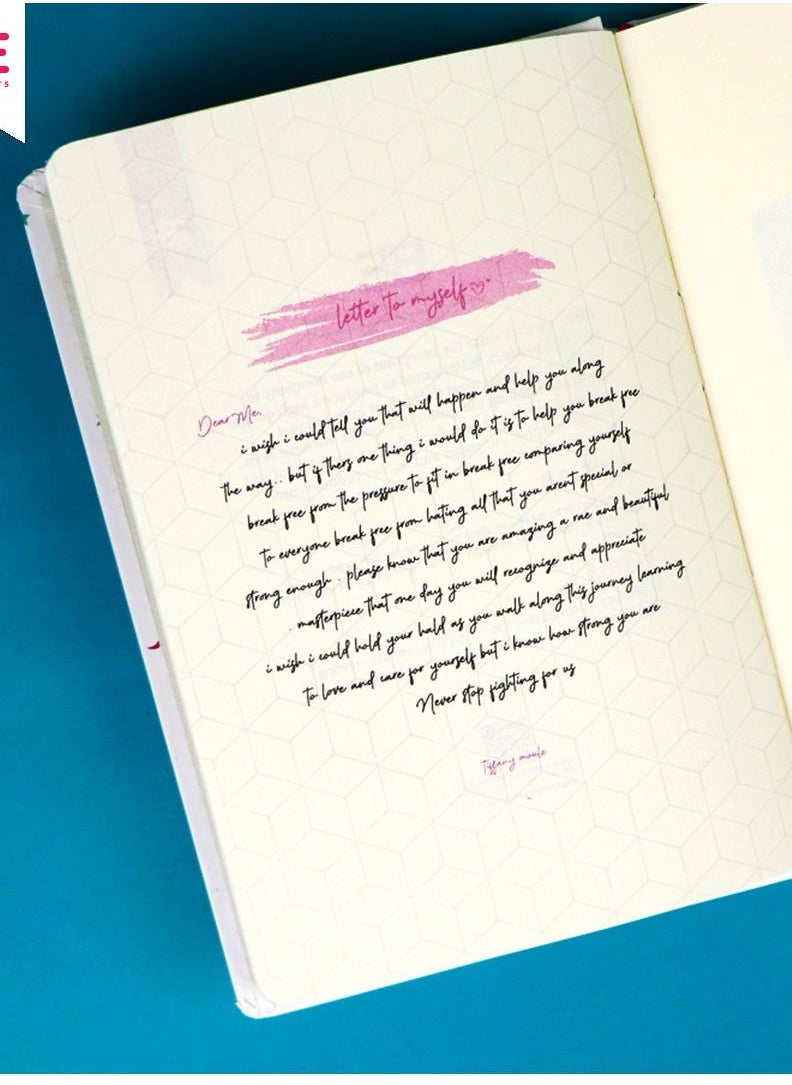 E
rs
letter to myself
Dear Me,
i wish i could tell you that will happen and help you along
the way.. but if thers one thing i would do it is to help you break free
break free from the pressure to fit in break free comparing yourself
to everyone break free from hating all that you arent special or
strong enough . please know that you are amazing a rae and beautiful
masterpiece that one day you will recognize and appreciate
i wish i could hold your hald as you walk along this journey learning
to love and care for yourself but i know how strong you are
Never stop fighting for us
Tiffany moule